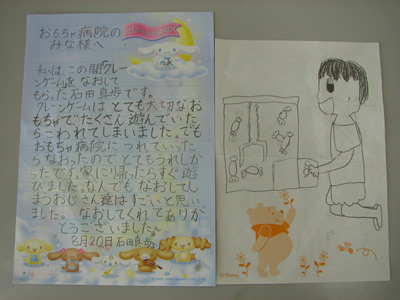 おもちゃ病院の
みな様へ
私は、この間「クレー
ンゲーム」をなおして
もらった石田真歩です。
クレーンゲームはとても大切なお
もちゃでたくさん遊んでいた
らこわれてしまいました。でも
おもちゃ病院につれていった
らなおったのでとてもうれしか
ったです。家に帰ったらすぐ遊
びました。なんでもなおしてし
まうおじさん達はすごいと思い
ました。なおしてくれてありが
とうございました。
8月20日石田真歩